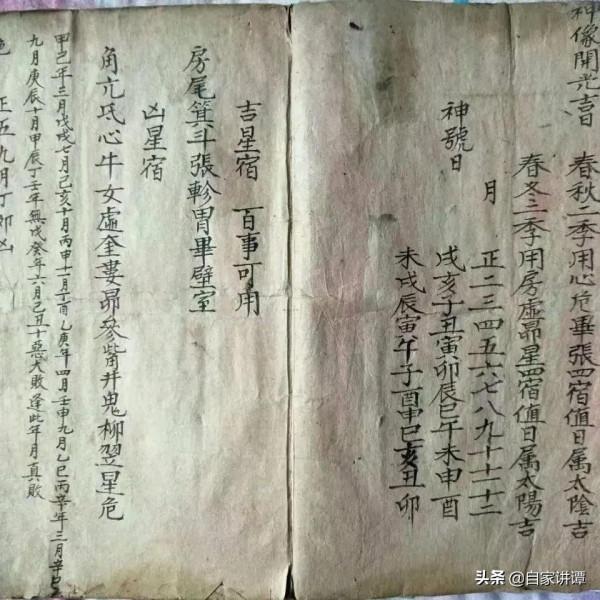 神像開光吉日
春秋二季用心危畢張四宿值日属太陰吉
春冬二季用房虛昴星四宿值日属太陽吉
月 正二三四五六七八九十十一十二
神號日 戌亥子丑寅卯辰巳午未申酉
未戌辰寅午子酉申巳亥丑卯
吉星宿 百事可用
房尾箕斗張軫胃畢壁室
凶星宿
角亢氐心牛女虛奎婁昴參觜井鬼柳翌星危
甲己年三月戊戌七月己亥十月丙申十一月丁酉乙庚年四月壬申九月乙巳丙辛年三月辛巳
九月庚辰十月甲辰丁壬年無戊癸年六月己丑十惡大敗逢此年月真敗
正五九月丁卯凶
头条 @自家讲谭